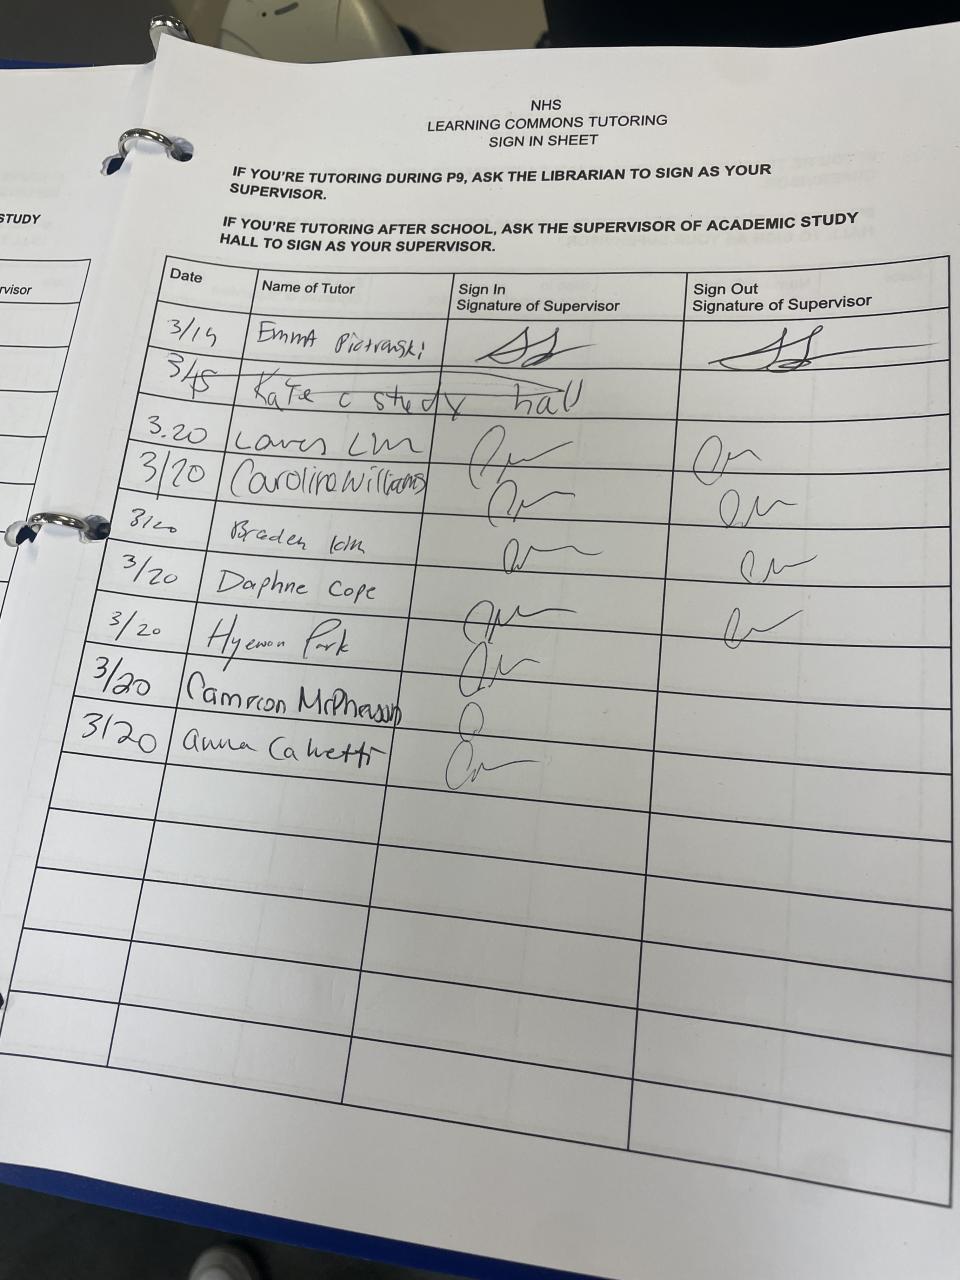 STUDY
rvisor
NHS
LEARNING COMMONS TUTORING
SIGN IN SHEET
IF YOU'RE TUTORING DURING P9, ASK THE LIBRARIAN TO SIGN AS YOUR
SUPERVISOR.
IF YOU'RE TUTORING AFTER SCHOOL, ASK THE SUPERVISOR OF ACADEMIC STUDY
HALL TO SIGN AS YOUR SUPERVISOR.
Date Name of Tutor Sign In Signature of Supervisor Sign Out Signature of Supervisor
3/19 Emma Piotrowski
Kate c study hall
3.20
3/20 Carolina Williams
3/20 Braden Kim
3/20 Daphne Cope
3/20 Hyewon Park
3/20 Cameron McPherson
3/20 anna Calvetti